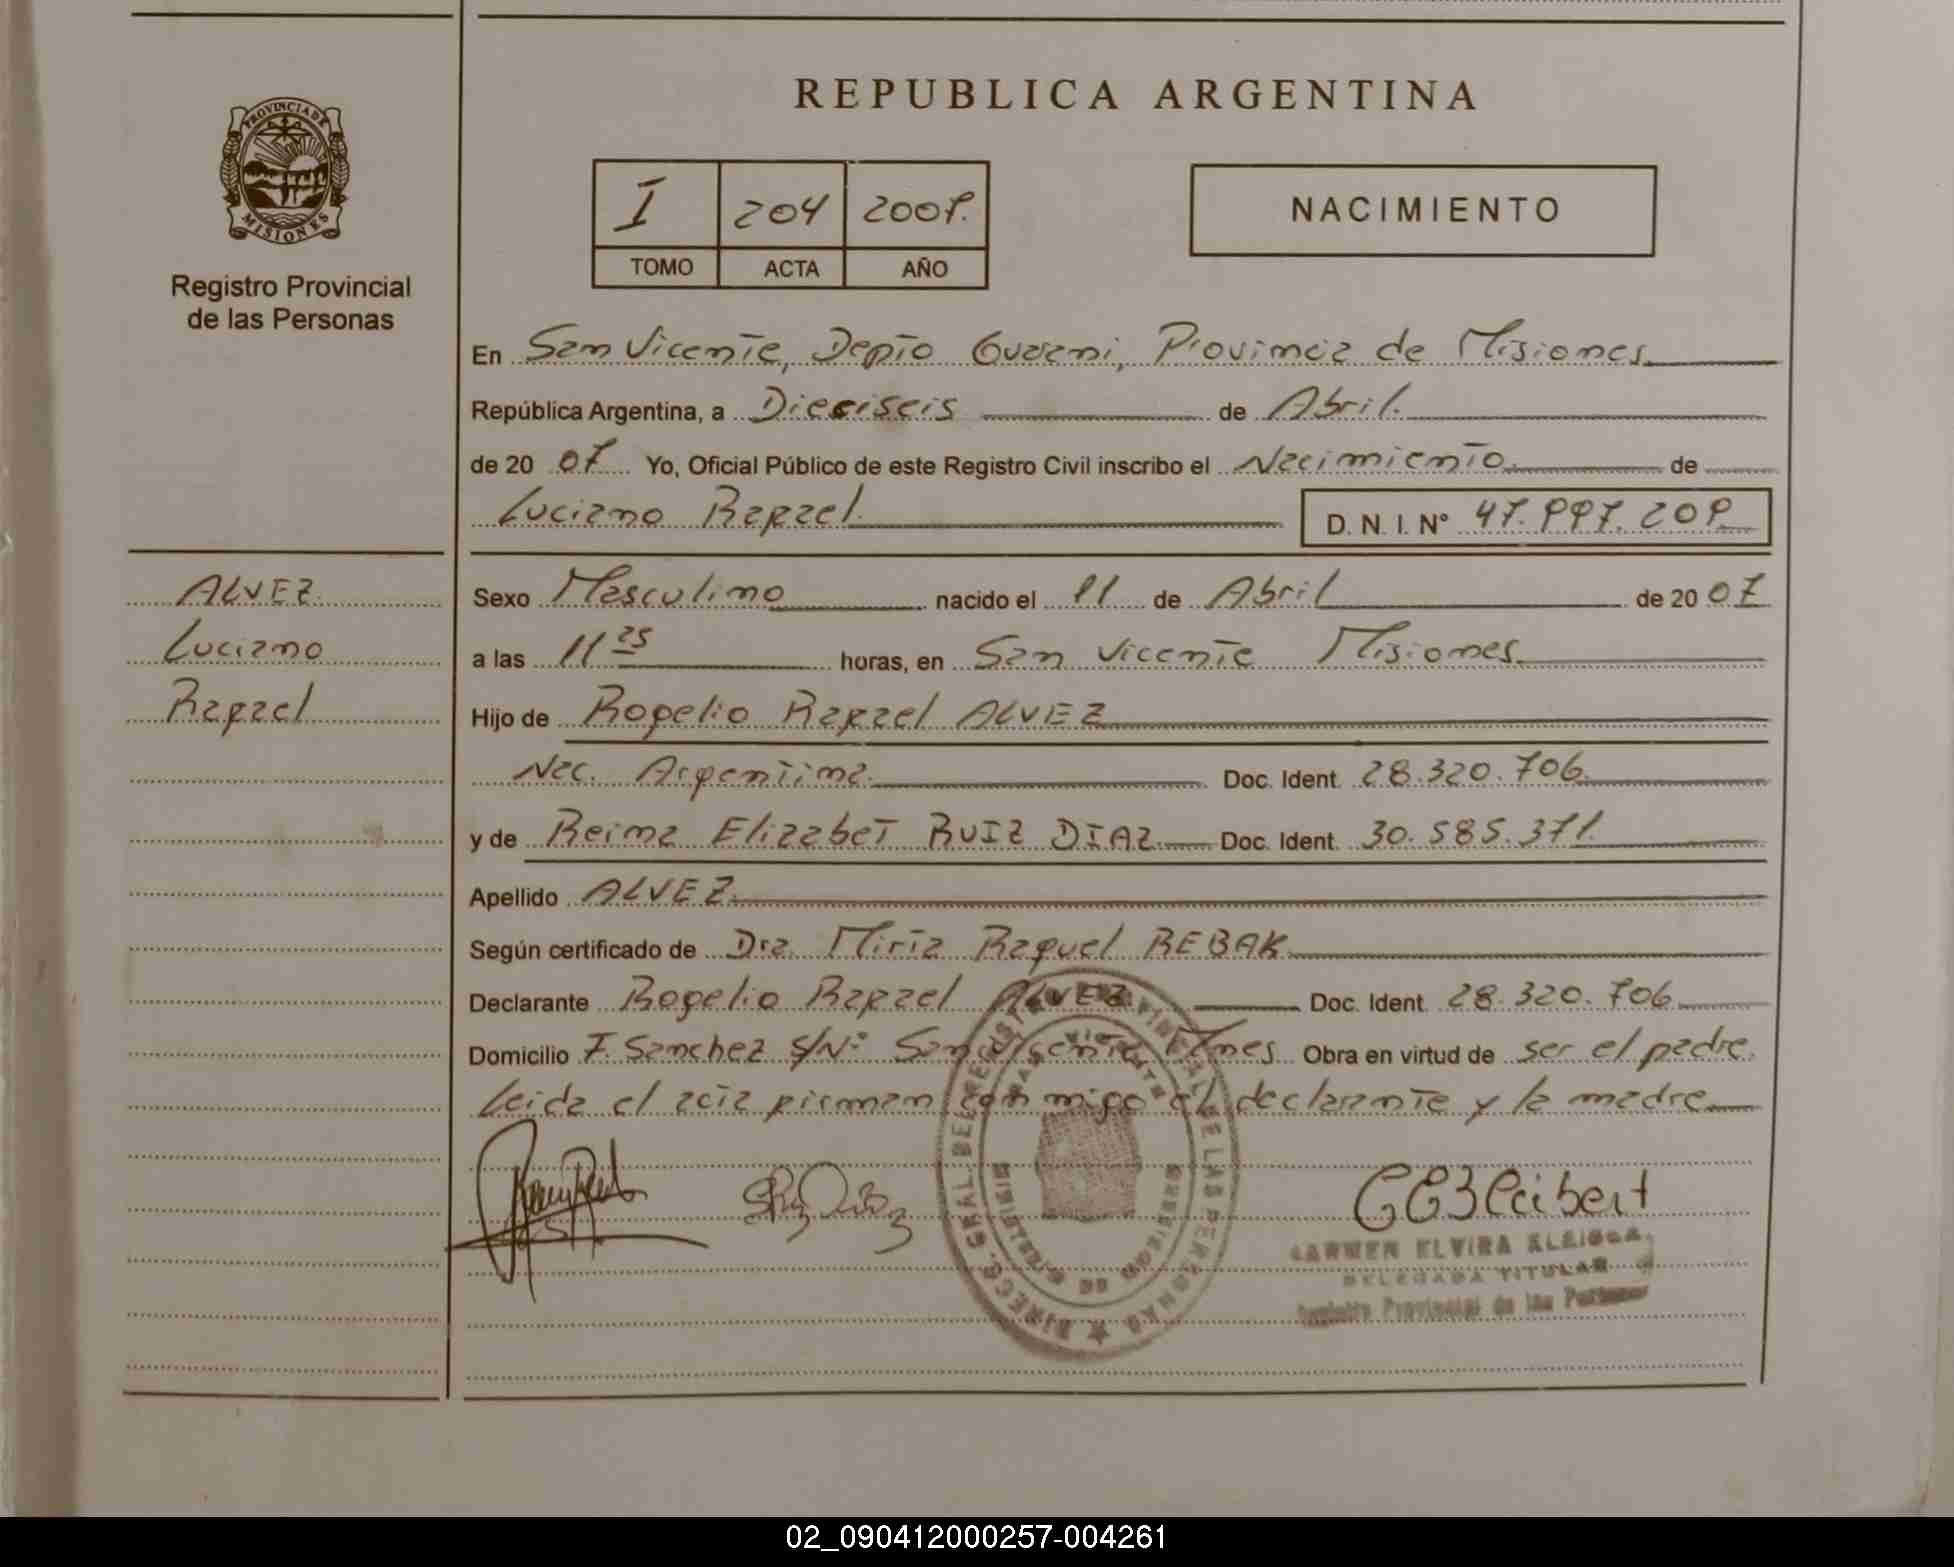 REPUBLICA ARGENTINA
PROVINCIA DE
MISIONES
Registro Provincial
de las Personas
I 204 2007.
TOMO ACTA AÑO
NACIMIENTO
En San Vicente, Depto Guarani, Provincia de Misiones
República Argentina, a Dieciseis de Abril.
de 20 07 Yo, Oficial Público de este Registro Civil inscribo el Nacimiento de
Luciano Rafael D. N. I. N° 47.997.209
ALVEZ
Luciano
Rafael
Sexo Masculino nacido el 11 de Abril de 20 07
a las 11 25 horas, en San Vicente Misiones
Hijo de Rogelio Rafael ALVEZ
Nac. Argentina. Doc. Ident. 28.320.706
y de Reina Elizabet RUIZ DIAZ Doc. Ident. 30.585.371
Apellido ALVEZ
Según certificado de Dra. Miria Raquel REBAK
Declarante Rogelio Rafael ALVEZ Doc. Ident 28.320.706
Domicilio F. Sanchez S/N° San Vicente Mnes Obra en virtud de ser el padre.
Leida el acta firman conmigo el declarante y la madre
DIRECC. GRAL. DEL REGISTRO PROVINCIAL DE LAS PERSONAS
SAN VICENTE
MISIONES
CARMEN ELVIRA
DELEGADA TITULAR
Registro Provincial de las Personas
02_090412000257-004261